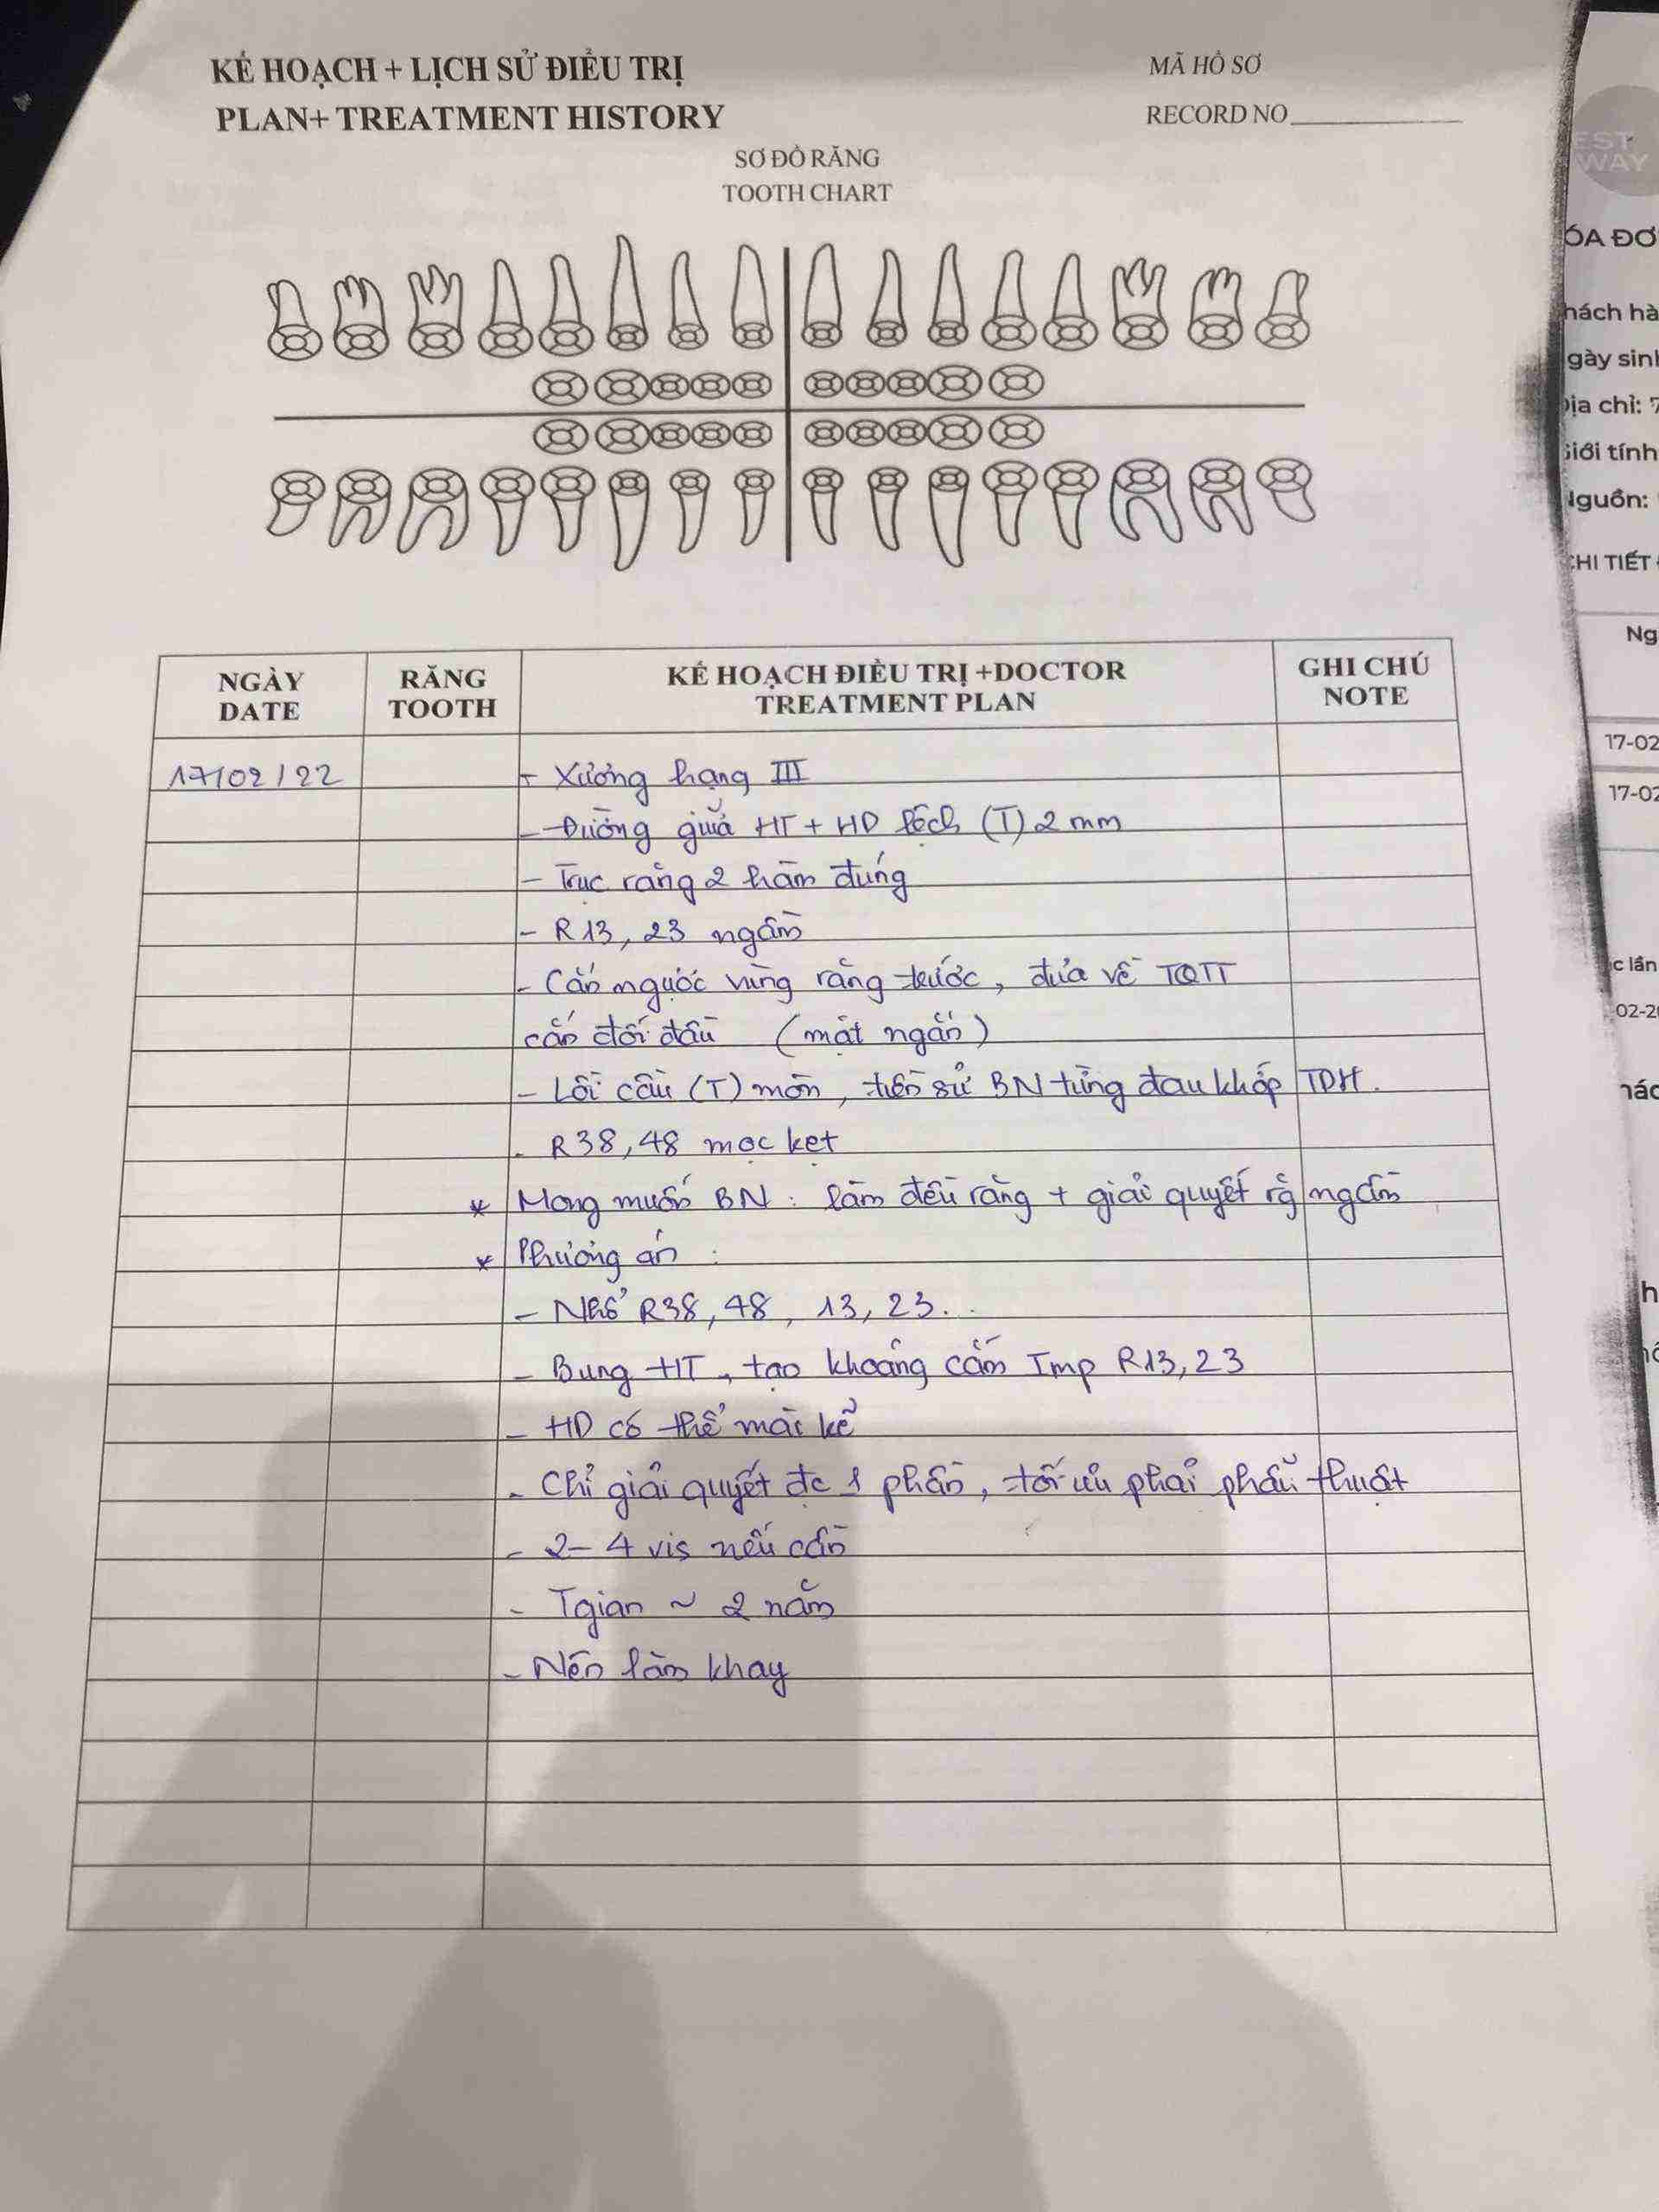 KẾ HOẠCH + LỊCH SỬ ĐIỀU TRỊ
PLAN+ TREATMENT HISTORY
MÃ HỒ SƠ
RECORD NO
SƠ ĐỒ RĂNG
TOOTH CHART
NGÀY
DATE
RĂNG
TOOTH
KẾ HOẠCH ĐIỀU TRỊ +DOCTOR
TREATMENT PLAN
GHI CHÚ
NOTE
17/02/22
- Xương hạng III
- Đường giữa HT + HD lệch (T) 2 mm
- Trục răng 2 hàm đứng
- R13, 23 ngầm
- Cắn ngược vùng răng trước, đưa về TQTT
cắn đối đầu (mặt ngắn)
- Lồi cầu (T) mòn, tiền sử BN từng đau khớp TDH.
- R38, 48 mọc kẹt
* Mong muốn BN: làm đều răng + giải quyết rg ngầm
* Phương án :
- Nhổ R38, 48, 13, 23..
- Bung HT, tạo khoảng cắm Imp R13, 23
- HD có thể mài kẽ
- Chỉ giải quyết đc 1 phần, tối ưu phải phẫu thuật
- 2-4 vis nếu cần
- Tgian ~ 2 năm
- Nên làm khay
EST
WAY
ÓA ĐƠ
hách hà
gày sinh
ịa chỉ: 7
Giới tính
Nguồn:
CHI TIẾT
Ng
17-02
17-02
c lần
02-2